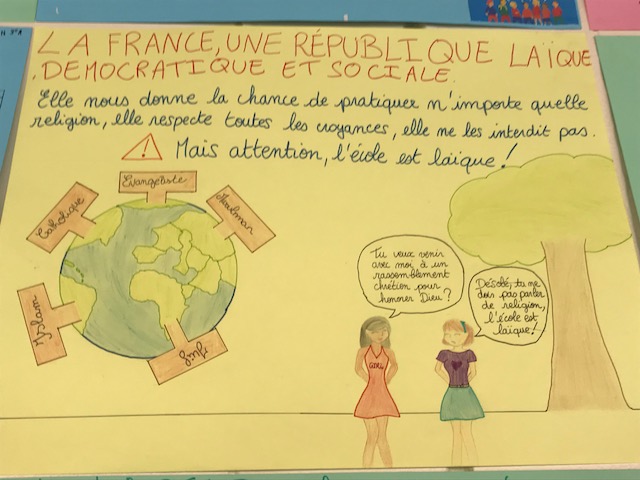 LA FRANCE, UNE RÉPUBLIQUE LAÏQUE
DEMOCRATIQUE ET SOCIALE.
Elle nous donne la chance de pratiquer n'importe quelle
religion, elle respecte toutes les croyances, elle ne les interdit pas.
Mais attention, l'école est laïque !
Evangéliste
Catholique
Musulman
Islam
Juif
Tu veux venir
avec moi à un
rassemblement
chrétien pour
honorer Dieu ?
Désolé, tu ne
dois pas parler
de religion,
l'école est
laïque !
GIRL